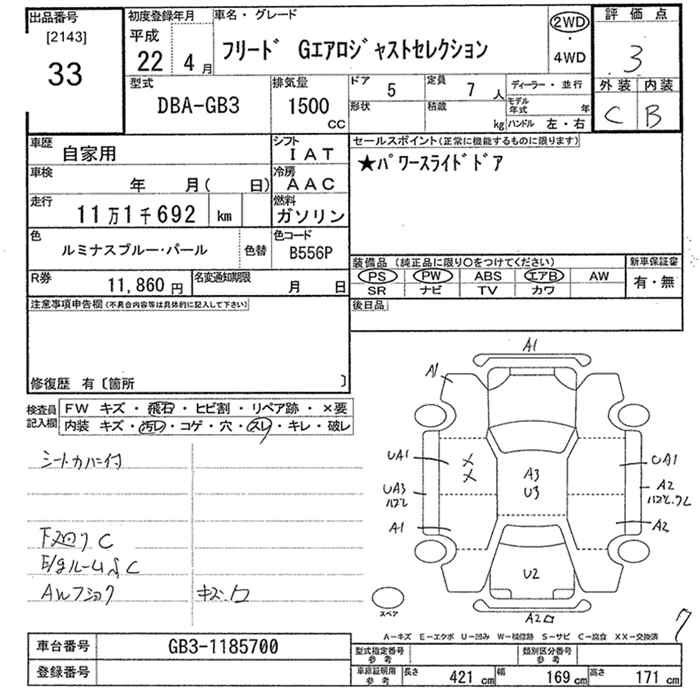 出品番号
[2143]
33
初度登録年月
平成
22 4月
車名・グレード
フリード Gエアロジャストセレクション
2WD
・
4WD
評価点
3
外装 内装
C B
型式
DBA-GB3
排気量
1500
CC
ドア
5
定員
7人
ディーラー・並行
形状
積載
kg
モデル年式
年
ハンドル 左・右
車歴
自家用
シフト
IAT
車検
年 月( 日)
冷房
AAC
走行
11万1千692 km
燃料
ガソリン
色
ルミナスブルー・パール
色替
色コード
B556P
R券
11,860円
名変通知期限
月 日
セールスポイント(正常に機能するものに限ります)
★パワースライドドア
装備品 (純正品に限り○をつけてください)
PS PW ABS エアB AW
SR ナビ TV カワ
新車保証書
有・無
後日品
注意事項申告欄(不具合内容等は具体的に記入して下さい)
修復歴 有〔箇所 〕
検査員
記入欄
FW キズ・飛石・ヒビ割・リペア跡・×要
内装 キズ・汚レ・コゲ・穴・スレ・キレ・破レ
シートカバー付
下廻りC
E/gルームS C
AWフショク
キズ
A1
A1
UA1
UA3
A1
A3
U3
U2
UA1
A2
A2
A2
スペア
A-キズ E-エクボ U-凹み W-補修跡 S-サビ C-腐食 XX-交換済
7
車台番号
GB3-1185700
登録番号
型式指定番号
参考
類別区分番号
参考
車庫証明用
参考
長さ 421 cm
幅 169 cm
高さ 171 cm